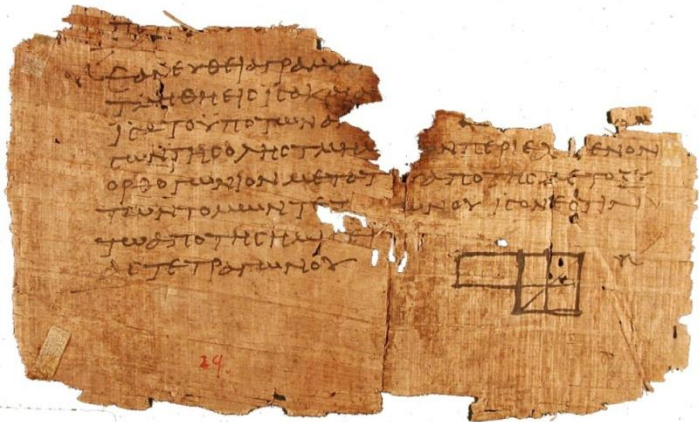 ΕΑΝ ΕΥΘΕΙΑ ΓΡΑΜΜ
ΤΜΗΘΗ ΕΙϹ ΙϹΑ ΚΑΙ Α
ΙϹΑ ΤΟ ΥΠΟ ΤΩΝ Α
ϹΩΝ ΤΗϹ ΟΛΗϹ ΤΜΗ ΩΝ ΠΕΡΙΕΧ ΜΕΝΟΝ
ΟΡΘΟΓΩΝΙΟΝ ΜΕΤΑ Τ ΑΠΟ ΤΗϹ ΜΕΤΟΞΥ
ΤΩΝ ΤΟΜΩΝ ΤΕΤ ΩΝΟΥ ΙϹΟΝ ΕϹΤΙΝ
ΤΩ ΑΠΟ ΤΗϹ ΗΜΙϹ
ΤΕΤΡΑΓΩΝΟΥ
29